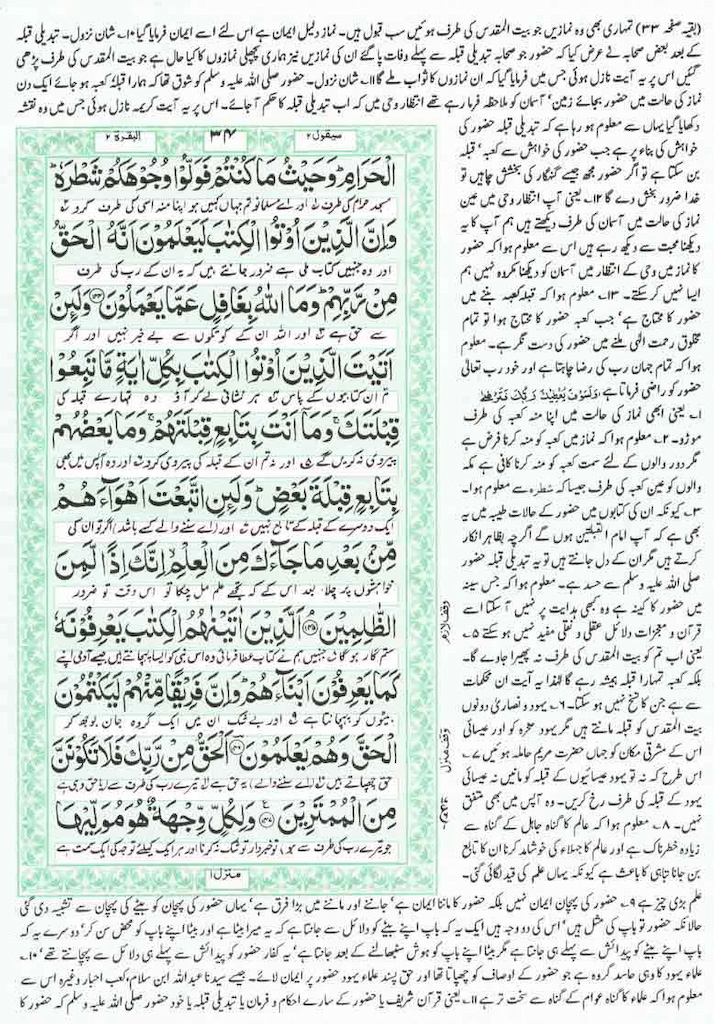 (بقیہ صفحہ ۳۳) تمہاری بھی وہ نمازیں جو بیت المقدس کی طرف ہوئیں سب قبول ہیں۔ نماز دلیل ایمان ہے اس لئے اسے ایمان فرمایا گیا ۱۰۔ شان نزول۔ تبدیلی قبلہ
کے بعد بعض صحابہ نے عرض کیا کہ حضور جو صحابہ تبدیلی قبلہ سے پہلے وفات پا گئے ان کی نمازیں نیز ہماری پچھلی نمازوں کا کیا حال ہے جو بیت المقدس کی طرف پڑھی
گئیں اس پر یہ آیت نازل ہوئی جس میں فرمایا گیا کہ ان نمازوں کا ثواب ملے گا ۱۱۔ شان نزول۔ حضور صلی اللہ علیہ وسلم کو شوق تھا کہ ہمارا قبلہ کعبہ ہو جائے ایک دن
نماز کی حالت میں حضور بجائے زمین' آسمان کو ملاحظہ فرما رہے تھے انتظار وحی میں کہ اب تبدیلی قبلہ کا حکم آ جائے۔ اس پر یہ آیت کریمہ نازل ہوئی جس میں وہ نقشہ
دکھایا گیا یہاں سے معلوم ہو رہا ہے کہ تبدیلی قبلہ حضور کی
خواہش کی بناء پر ہے جب حضور کی خواہش سے کعبہ' قبلہ
بن سکتا ہے تو اگر حضور مجھ جیسے گنہگار کی بخشش چاہیں تو
خدا ضرور بخش دے گا ۱۲۔ یعنی آپ انتظار وحی میں عین
نماز کی حالت میں آسمان کی طرف دیکھتے ہیں ہم آپ کا یہ
دیکھنا محبت سے دیکھ رہے ہیں اس سے معلوم ہوا کہ حضور
کا نماز میں وحی کے انتظار میں آسمان کو دیکھنا مکروہ نہیں ہم
ایسا نہیں کر سکتے۔ ۱۳۔ معلوم ہوا کہ قبلہ کعبہ بننے میں
حضور کا محتاج ہے' جب کعبہ حضور کا محتاج ہوا تو تمام
مخلوق رحمت الٰہی ملنے میں حضور کی دست نگر ہے۔ معلوم
ہوا کہ تمام جہان رب کی رضا چاہتا ہے اور خود رب تعالیٰ
حضور کو راضی فرماتا ہے وَلَسَوْفَ يُعْطِيكَ رَبُّكَ فَتَرْضٰى
۱۔ یعنی ابھی نماز کی حالت میں اپنا منہ کعبہ کی طرف
موڑو۔ ۲۔ معلوم ہوا کہ نماز میں کعبہ کو منہ کرنا فرض ہے
مگر دور والوں کے لئے سمت کعبہ کو منہ کرنا کافی ہے مکہ
والوں کو عین کعبہ کی طرف جیسا کہ شطرہ سے معلوم ہوا۔
۳۔ کیونکہ ان کی کتابوں میں حضور کے حالات طیبہ میں یہ
بھی ہے کہ آپ امام القبلتین ہوں گے اگرچہ بظاہر انکار
کرتے ہیں مگر ان کے دل جانتے ہیں تو یہ تبدیلی قبلہ حضور
صلی اللہ علیہ وسلم سے حسد ہے۔ معلوم ہوا کہ جس سینہ
میں حضور کا کینہ ہے وہ کبھی ہدایت پر نہیں آ سکتا اسے
قرآن و معجزات دلائل عقلی و نقلی مفید نہیں ہو سکتے ۵۔
یعنی اب تم کو بیت المقدس کی طرف نہ پھیرا جاوے گا۔
بلکہ کعبہ تمہارا قبلہ ہمیشہ رہے گا لہٰذا یہ آیت ان محکمات
سے ہے جن کا نسخ نہیں ہو سکتا۔ ۶۔ یہود و نصاریٰ دونوں
بیت المقدس کو قبلہ مانتے ہیں مگر یہود صخرہ کو اور عیسائی
اس کے مشرقی مکان کو جہاں حضرت مریم حاملہ ہوئیں ۷۔
اس طرح کہ نہ تو یہود عیسائیوں کے قبلہ کو مانیں نہ عیسائی
یہود کے قبلہ کی طرف رخ کریں۔ وہ آپس میں بھی متفق
نہیں۔ ۸۔ معلوم ہوا کہ عالم کا گناہ جاہل کے گناہ سے
زیادہ خطرناک ہے اور عالم کا جہلاء کی خوشامد کرنا ان کا تابع
بن جانا تباہی کا باعث ہے کیونکہ یہاں علم کی قید لگائی گئی۔
سیقول ۲
۳۴
البقرۃ ۲
الْحَرَامِ ؕ وَحَيْثُ مَا كُنْتُمْ فَوَلُّوْا وُجُوْهَكُمْ شَطْرَهٗ ؕ
مسجد حرام کی طرف اور اے مسلمانو تم جہاں کہیں ہو اپنا منہ اسی کی طرف کرو
وَاِنَّ الَّذِيْنَ اُوْتُوا الْكِتٰبَ لَيَعْلَمُوْنَ اَنَّهُ الْحَقُّ
اور وہ جنہیں کتاب ملی ہے ضرور جانتے ہیں کہ یہ ان کے رب کی طرف
مِنْ رَّبِّهِمْ ؕ وَمَا اللّٰهُ بِغَافِلٍ عَمَّا يَعْمَلُوْنَ ۝۱۴۴ وَلَئِنْ
سے حق ہے اور اللہ ان کے کوتکوں سے بے خبر نہیں اور اگر
اَتَيْتَ الَّذِيْنَ اُوْتُوا الْكِتٰبَ بِكُلِّ اٰيَةٍ مَّا تَبِعُوْا
تم ان کتابیوں کے پاس ہر نشانی لے کر آؤ وہ تمہارے قبلہ کی
قِبْلَتَكَ ۚ وَمَاۤ اَنْتَ بِتَابِعٍ قِبْلَتَهُمْ ۚ وَمَا بَعْضُهُمْ
پیروی نہ کریں گے اور نہ تم ان کے قبلہ کی پیروی کرو اور وہ آپس میں بھی
بِتَابِعٍ قِبْلَةَ بَعْضٍ ؕ وَلَئِنِ اتَّبَعْتَ اَهْوَآءَهُمْ
ایک دوسرے کے قبلہ کے تابع نہیں اور (اے سننے والے کسے باشد) اگر تو ان کی
مِّنْۢ بَعْدِ مَا جَآءَكَ مِنَ الْعِلْمِ ۙ اِنَّكَ اِذًا لَّمِنَ
خواہشوں پر چلا بعد اس کے کہ تجھے علم مل چکا تو اس وقت تو ضرور
الظّٰلِمِيْنَ ۝۱۴۵ اَلَّذِيْنَ اٰتَيْنٰهُمُ الْكِتٰبَ يَعْرِفُوْنَهٗ
ستم گار ہو گا جنہیں ہم نے کتاب عطا فرمائی وہ اس نبی کو ایسا پہچانتے ہیں جیسے آدمی اپنے
كَمَا يَعْرِفُوْنَ اَبْنَآءَهُمْ ؕ وَاِنَّ فَرِيْقًا مِّنْهُمْ لَيَكْتُمُوْنَ
بیٹوں کو پہچانتا ہے اور بے شک ان میں ایک گروہ جان بوجھ کر
الْحَقَّ وَهُمْ يَعْلَمُوْنَ ۝۱۴۶ اَلْحَقُّ مِنْ رَّبِّكَ فَلَا تَكُوْنَنَّ
حق چھپاتے ہیں (اے سننے والے) یہ حق ہے تیرے رب کی طرف سے (یا حق وہی ہے
مِنَ الْمُمْتَرِيْنَ ۝۱۴۷ وَلِكُلٍّ وِّجْهَةٌ هُوَ مُوَلِّيْهَا
جو تیرے رب کی طرف سے ہو) تو خبردار تو شک نہ کرنا اور ہر ایک کیلئے توجہ کی ایک سمت ہے
منزل ۱
وقف لازم
وقف منزل
علم بڑی چیز ہے ۹۔ حضور کی پہچان ایمان نہیں بلکہ حضور کا ماننا ایمان ہے' جاننے اور ماننے میں بڑا فرق ہے' یہاں حضور کی پہچان کو بیٹے کی پہچان سے تشبیہ دی گئی
حالانکہ حضور تو باپ کی مثل ہیں' اس کی دو وجہ ہیں ایک یہ کہ باپ اپنے بیٹے کو دلائل سے جانتا ہے کہ یہ میرا بیٹا ہے اور بیٹا اپنے باپ کو محض سن کر' دوسرے یہ کہ
باپ اپنے بیٹے کو پیدائش سے پہلے ہی جانتا ہے مگر بیٹا باپ کو ہوش سنبھالنے کے بعد جانتا ہے' یہ کفار حضور کو پیدائش سے پہلے ہی دلائل سے پہچانتے تھے' ۱۰۔
علماء یہود کا وہی حاسد گروہ ہے جو حضور کے اوصاف کو چھپاتا تھا اور حق پسند علماء یہود حضور پر ایمان لائے۔ جیسے سیدنا عبداللہ ابن سلام' کعب احبار وغیرہ اس سے
معلوم ہوا کہ علماء کا گناہ عوام کے گناہ سے سخت تر ہے ۱۱۔ یعنی قرآن شریف یا حضور کے سارے احکام و فرمان یا تبدیلی قبلہ یا خود حضور صلی اللہ علیہ وسلم کہ حضور کا